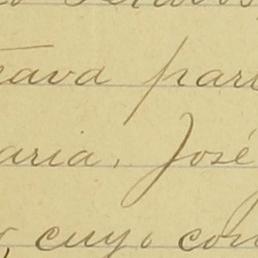 tava par
aria, José
, cuyo con